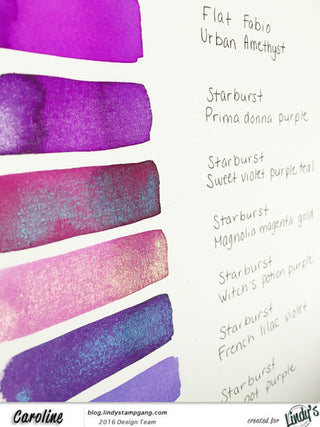 Flat Fabio
Urban Amethyst
Starburst
Prima donna purple
Starburst
Sweet violet purple teal
Starburst
Magnolia magenta gold
Starburst
Witch's potion purple
Starburst
French lilac violet
Starburst
pot purple
Caroline
blog.lindystampgang.com
2016 Design Team
created for
Lindy's